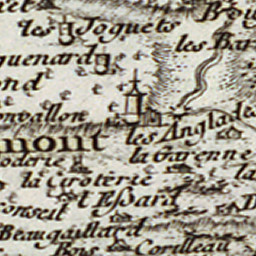 les Joquets
les Bar
guenard
ond
onvallon
les Anglade
mont
la Garenne
oderie
la Groterie
la
onseil
Essard
Beaugaillard
Bois Corilleau